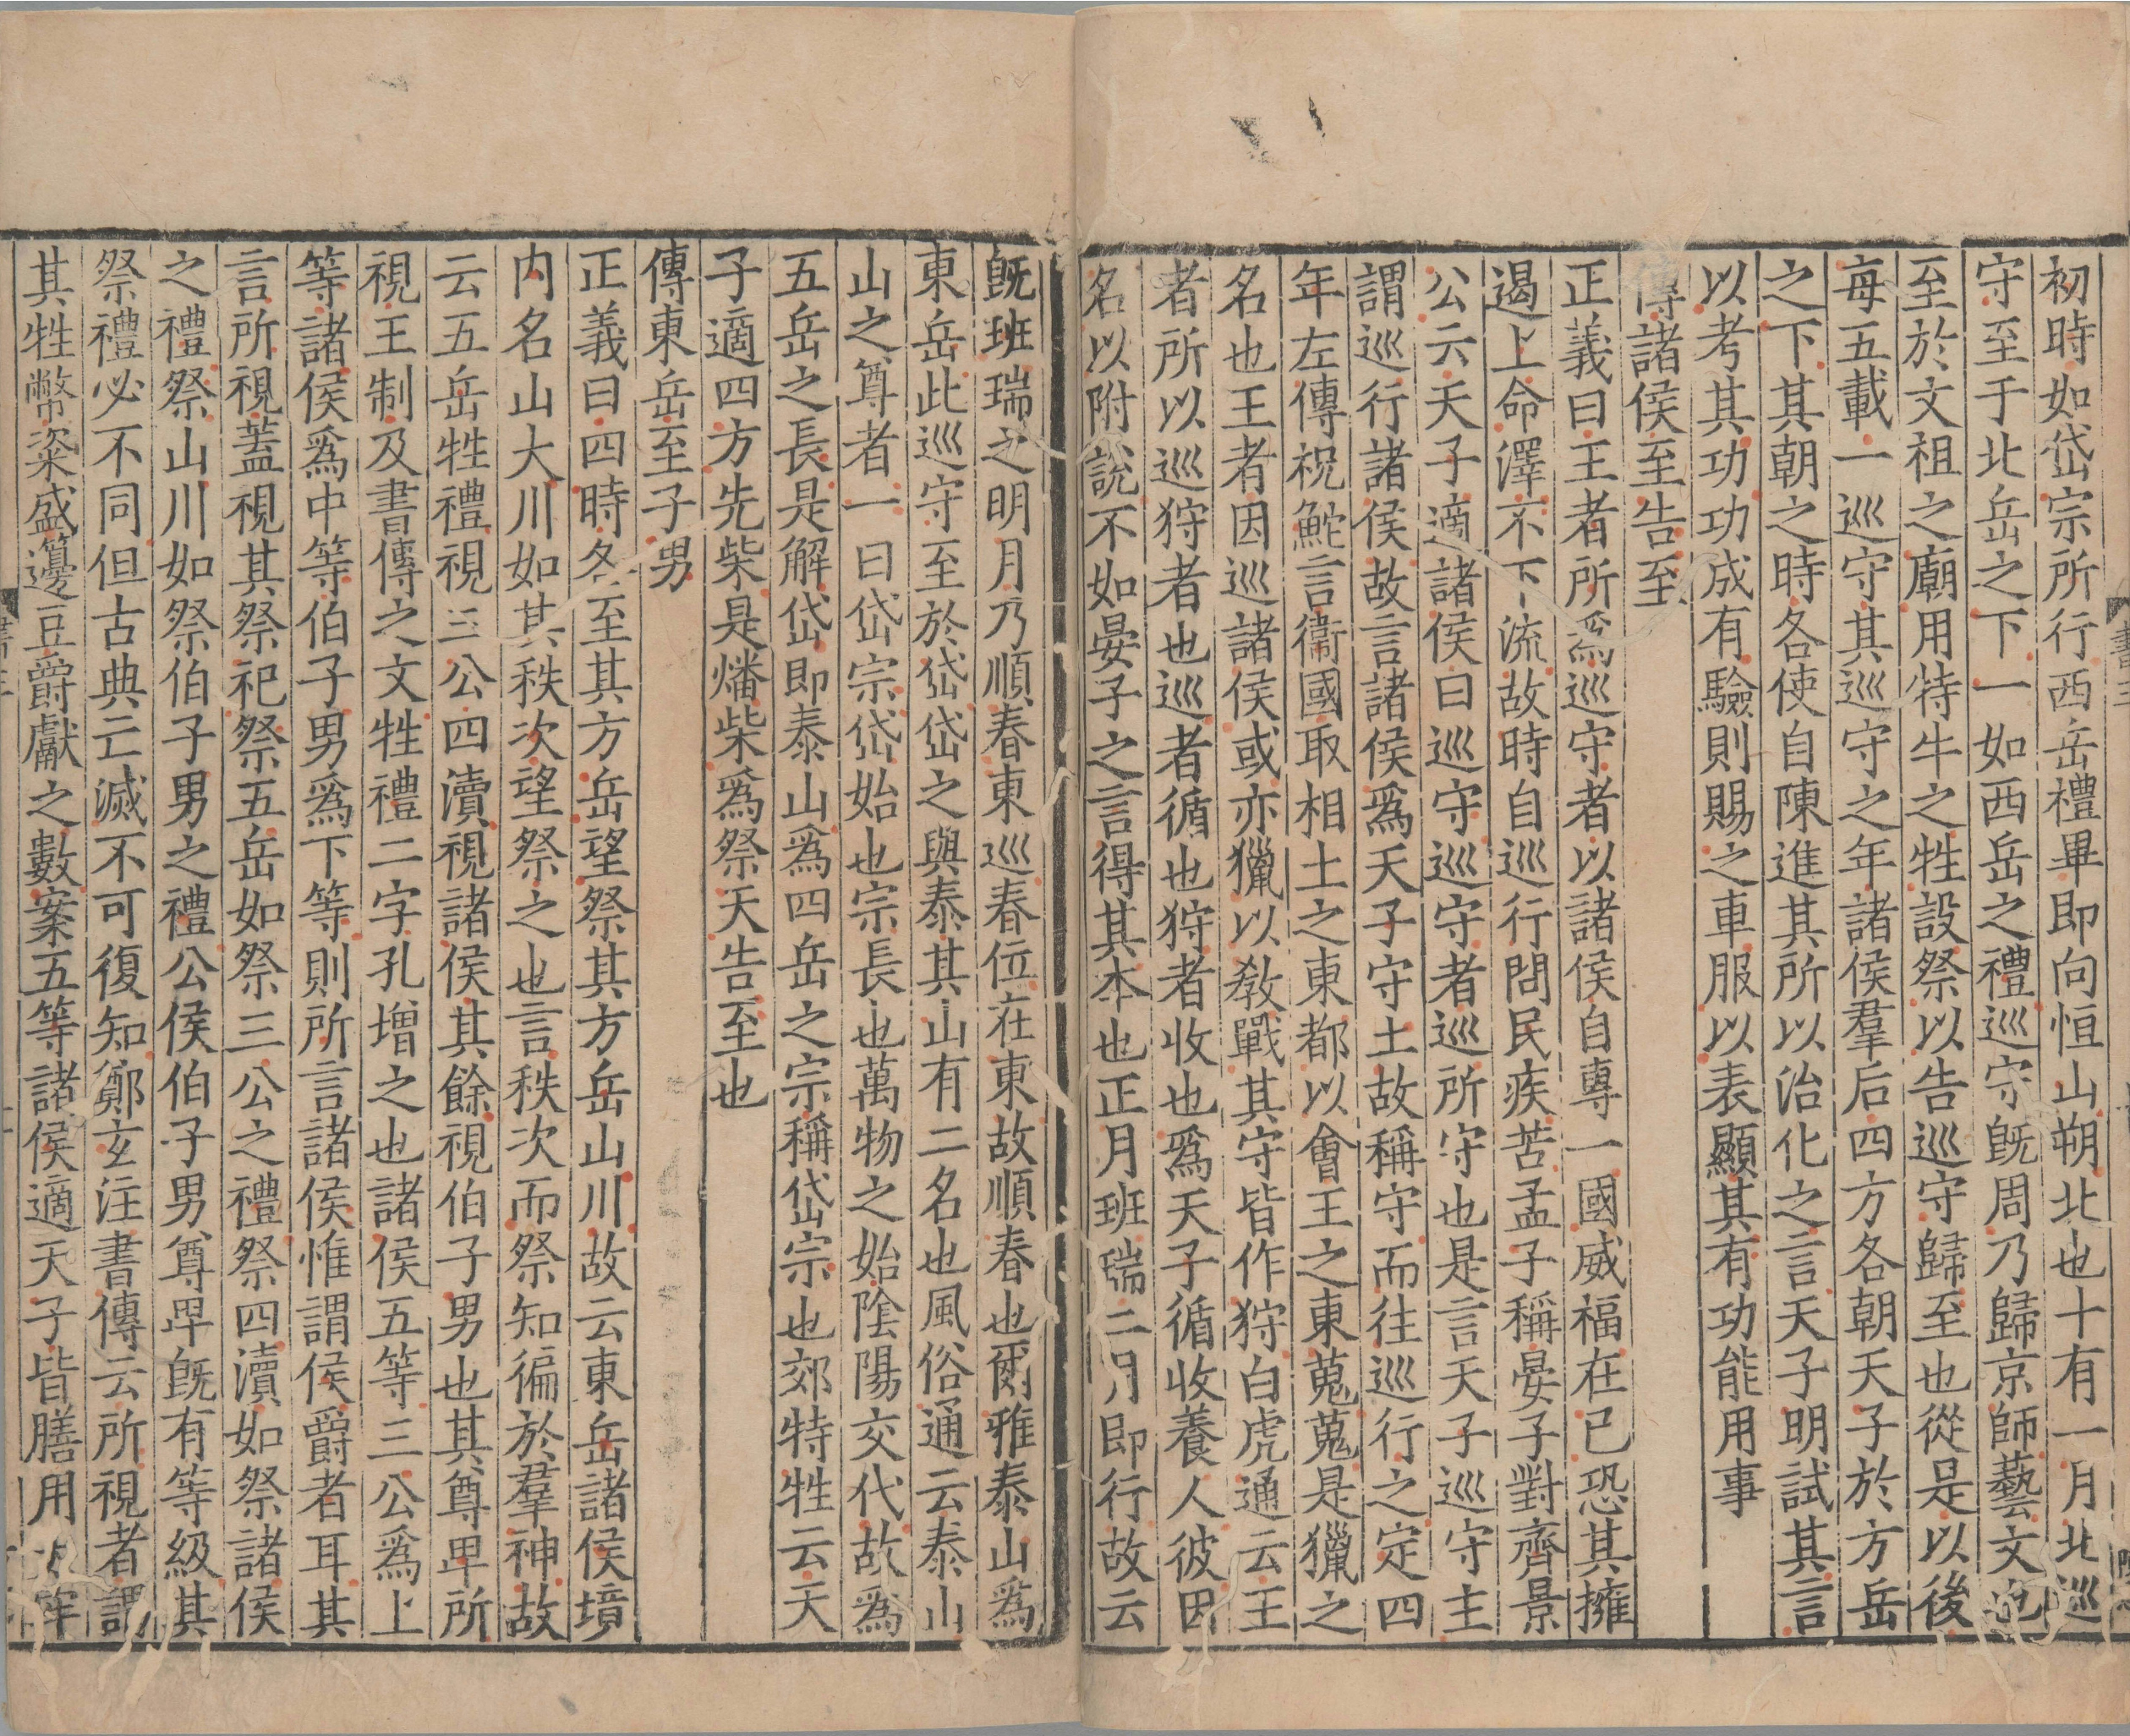 初時如岱宗所行西岳禮畢即向恒山朔北也十有一月北巡
守至于北岳之下一如西岳之禮巡守旣周乃歸京師藝文也
至於文祖之廟用特牛之牲設祭以告巡守歸至也從是以後
每五載一巡守其巡守之年諸侯羣后四方各朝天子於方岳
之下其朝之時各使自陳進其所以治化之言天子明試其言
以考其功功成有驗則賜之車服以表顯其有功能用事
傳諸侯至告至
正義曰王者所爲巡守者以諸侯自專一國威福在已恐其擁
遏上命澤不下流故時自巡行問民疾苦孟子稱晏子對齊景
公云天子適諸侯曰巡守巡守者巡所守也是言天子巡守主
謂巡行諸侯故言諸侯爲天子守土故稱守而往巡行之定四
年左傳祝鮀言衞國取相土之東都以會王之東蒐蒐是獵之
名也王者因巡諸侯或亦獵以敎戰其守皆作狩白虎通云王
者所以巡狩者也巡者循也狩者收也爲天子循收養人彼因
名以附說不如晏子之言得其本也正月班瑞二月即行故云
旣班瑞之明月乃順春東巡春位在東故順春也爾雅泰山爲
東岳此巡守至於岱岱之與泰其山有二名也風俗通云泰山
山之尊者一曰岱宗岱始也宗長也萬物之始陰陽交代故爲
五岳之長是解岱即泰山爲四岳之宗稱岱宗也郊特牲云天
子適四方先柴是燔柴爲祭天告至也
傳東岳至子男
正義曰四時各至其方岳望祭其方岳山川故云東岳諸侯境
内名山大川如其秩次望祭之也言秩次而祭知徧於羣神故
云五岳牲禮視三公四瀆視諸侯其餘視伯子男也其尊卑所
視王制及書傳之文牲禮二字孔增之也諸侯五等三公爲上
等諸侯爲中等伯子男爲下等則所言諸侯惟謂侯爵者耳其
言所視蓋視其祭祀祭五岳如祭三公之禮祭四瀆如祭諸侯
之禮祭山川如祭伯子男之禮公侯伯子男尊卑旣有等級其
祭禮必不同但古典亡滅不可復知鄭玄注書傳云所視者謂
其牲幣粢盛籩豆爵獻之數案五等諸侯適天子皆膳用